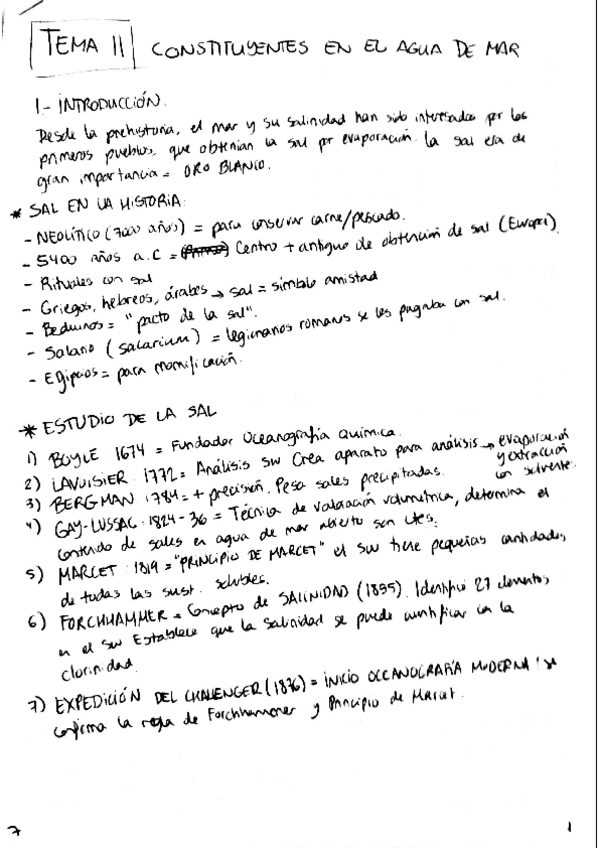 TEMA 11 CONSTITUYENTES EN EL AGUA DE MAR
1.- INTRODUCCIÓN.
Desde la prehistoria, el mar y su salinidad han sido interesados por los
primeros pueblos, que obtenían la sal por evaporación. la sal era de
gran importancia = ORO BLANCO.
* SAL EN LA HISTORIA:
- NEOLÍTICO (7000 años) = para conservar carne/pescado.
- 5400 años a.C = Centro + antiguo de obtención de sal (Europa).
- Rituales con sal
- Griegos, hebreos, árabes → sal = símbolo amistad
- Beduinos = "pacto de la sal".
- Salario (salarium) = legionarios romanos se les pagaba con sal.
- Egipcios = para momificación.
* ESTUDIO DE LA SAL
1) BOYLE 1674 = Fundador Oceanografía Química.
2) LAVOISIER 1772 = Análisis SW Crea aparato para análisis → evaporación
y extracción
con solvente.
3) BERGMAN 1784 = + precisión. Pesa sales precipitadas.
4) GAY-LUSSAC 1824-36 = Técnica de valoración volumétrica, determina el
contenido de sales en agua de mar abierto son ctes.
5) MARCET 1819 = "PRINCIPIO DE MARCET" el SW tiene pequeñas cantidades
de todas las sust. solubles.
6) FORCHHAMMER = Concepto de SALINIDAD (1895). Identificó 27 elementos
en el SW Establece que la salinidad se puede cuantificar con la
clorinidad.
7) EXPEDICIÓN DEL CHALLENGER (1876) = INICIO OCEANOGRAFÍA MODERNA se
confirma la regla de Forchhammer y Principio de Marcet.
7
1